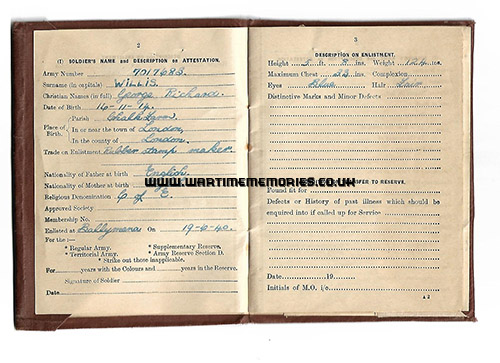 2
(I) SOLDIER'S NAME AND DESCRIPTION ON ATTESTATION.
Army Number 7017683.
Surname (in capitals) WILLIS.
Christian Names (in full) George Richard.
Date of Birth 16-11-14.
Place of Birth.
Parish Chalk Farm
In or near the town of London,
In the county of London.
Trade on Enlistment Rubber stamp maker
Nationality of Father at birth English
Nationality of Mother at birth
Religious Denomination C of E.
Approved Society
Membership No.
Enlisted at Ballymena On 19-6-40.
For the :—
* Regular Army. * Supplementary Reserve.
* Territorial Army. * Army Reserve Section D.
* Strike out those inapplicable.
For years with the Colours and years in the Reserve.
Signature of Soldier
Date
3
DESCRIPTION ON ENLISTMENT.
Height 5 ft. 8 ins. Weight lbs.
Maximum Chest ins. Complexion
Eyes Blue Hair
Distinctive Marks and Minor Defects
TRANSFER TO RESERVE.
Found fit for
Defects or History of past illness which should be
enquired into if called up for Service
Date 19
Initials of M.O. i/c
A 2
WWW.WARTIMEMEMORIES.CO.UK